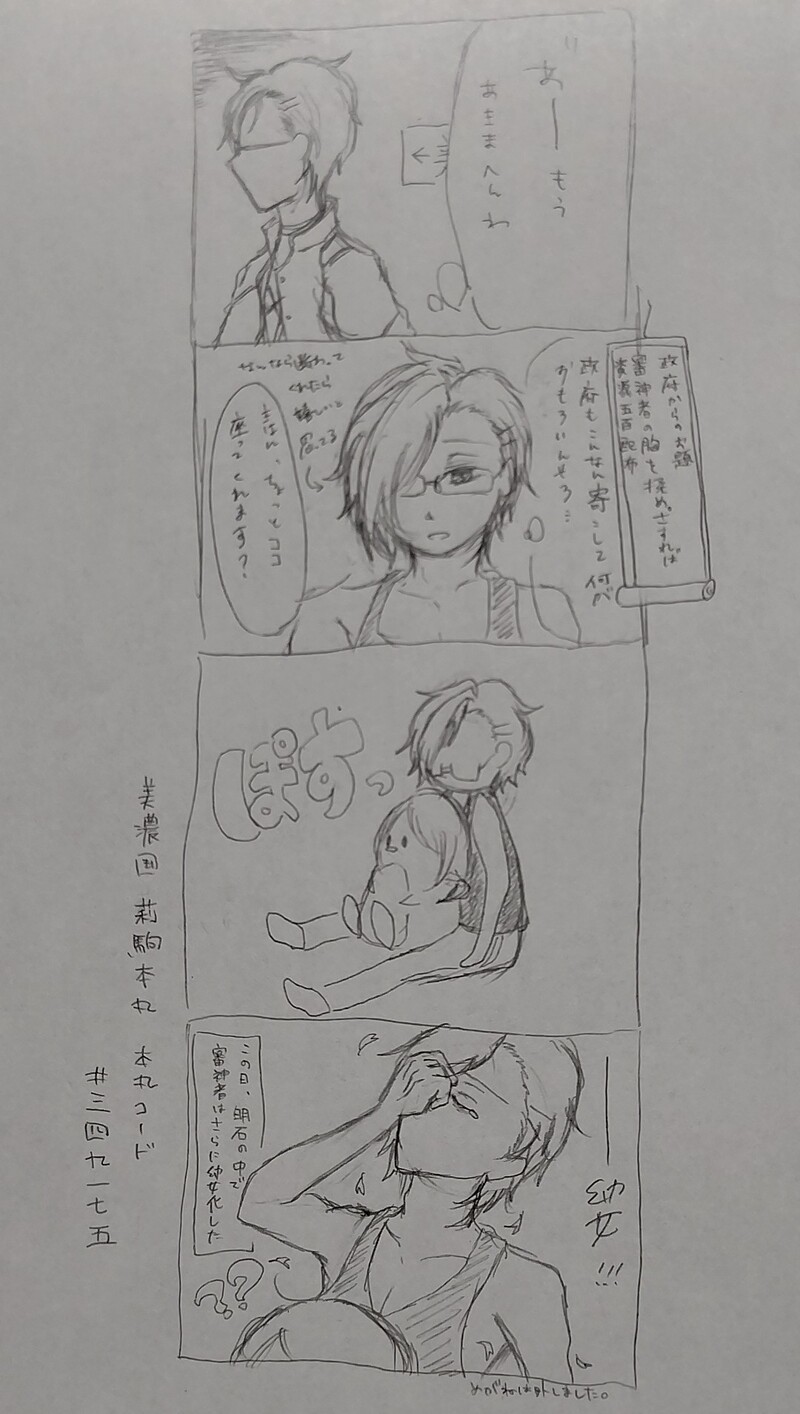 あ゛ーもう
あきまへんわ
政府からのお題
審神者の胸を揉め。さすれば
資源五百配布
政府もこんなん寄こして何が
おもろいんやろ…
なんなら断わって
くれたら
嬉しいと
思ってる
主はん、ちょっとココ
座ってくれます？
ぽすっ
――幼女!!!
この日、明石の中で
審神者はさらに幼女化した
??
めがねは外しました。
美濃国 莉駒本丸 本丸コード
#三四九一七五